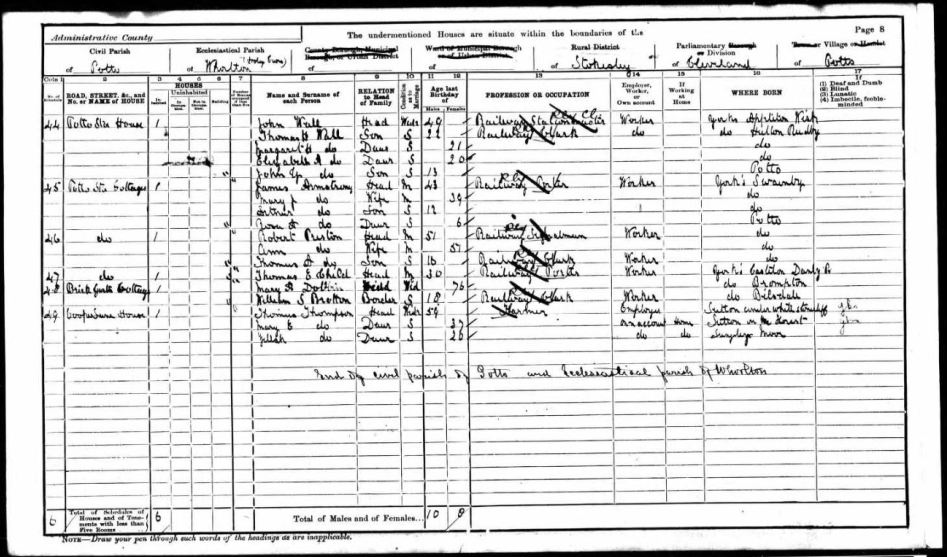 Administrative County
The undermentioned Houses are situate within the boundaries of the
Page 8
Civil Parish
of Potto
Ecclesiastical Parish
of Whorlton (Holy Cross)
County Borough, Municipal Borough or Urban District
of
Ward of Municipal Borough or of Urban District
of
Rural District
of Stokesley
Parliamentary Borough or Division
of Cleveland
Town or Village or Hamlet
of Potto
ROAD, STREET, &c., and No. or NAME of HOUSE
HOUSES
Uninhabited
Name and Surname of each Person
RELATION to Head of Family
Condition as to Marriage
Age last Birthday of
Males Females
PROFESSION OR OCCUPATION
Employer, Worker, or Own account
If Working at Home
WHERE BORN
(1) Deaf and Dumb
(2) Blind
(3) Lunatic
(4) Imbecile, feeble-minded
44 Potto Stn House 1 John Wall Head Widr 49 Railway Stationmaster Worker Yorks Appleton Wisk
Thomas H Wall Son S 22 Railway Clerk do do Hutton Rudby
Margaret H do Daur S 21 do
Elizabeth A do Daur S 20 do
John do Son S 13 Potto
45 Potto Stn Cottages 1 James Armstrong Head M 43 Railway Porter Worker Yorks Swainby
Mary J do Wife M 39 do
Arthur do Son S 12 do
do Daur S 6 Potto
46 do 1 Robert Preston Head M 51 Railway Signalman Worker do
Ann do Wife M 51 do
Thomas do Son S 16 Railway Clerk Worker do
47 do 1 Thomas E Head M 30 Railway Porter Worker Yorks Castleton Danby
48 Cottage 1 Mary Head Wid 76 do Brompton
William S Brotton Boarder S 18 Railway Clerk Worker do Bilsdale
49 House 1 Thomas Thompson Head Widr 59 Farmer Employer Sutton under Whitestonecliff
Mary E do Daur S Own account Home Sutton in the Forest
do Daur S 26 do do Moor
End of civil parish of Potto and Ecclesiastical parish of Whorlton
6 Total of Schedules of Houses and of Tenements with less than Five Rooms 6 Total of Males and of Females... 10 8
NOTE—Draw your pen through such words of the headings as are inapplicable.